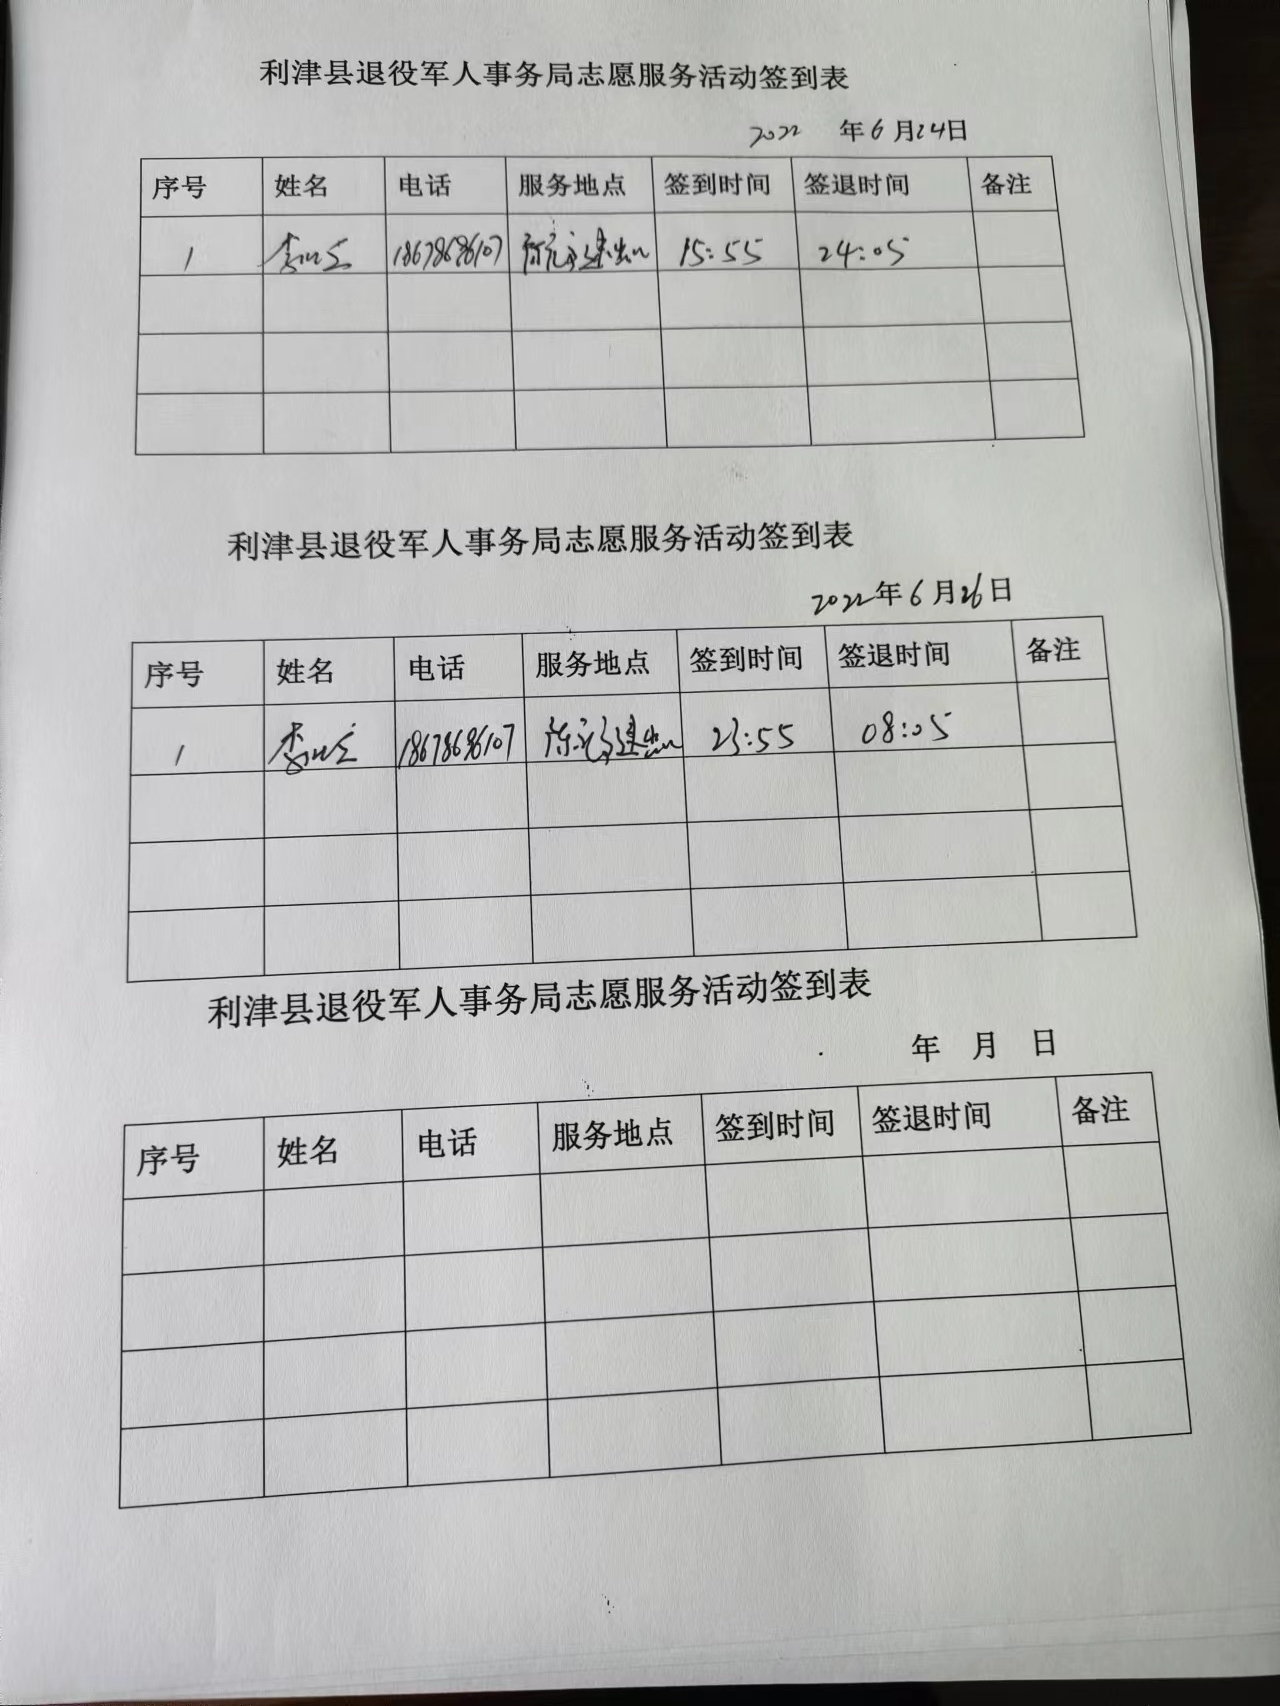 利津县退役军人事务局志愿服务活动签到表
2022 年 6 月 24 日
序号 姓名 电话 服务地点 签到时间 签退时间 备注
1 李 18678696107 15:55 24:05
利津县退役军人事务局志愿服务活动签到表
2022 年 6 月 26 日
序号 姓名 电话 服务地点 签到时间 签退时间 备注
1 李 18678696107 23:55 08:05
利津县退役军人事务局志愿服务活动签到表
年 月 日
序号 姓名 电话 服务地点 签到时间 签退时间 备注